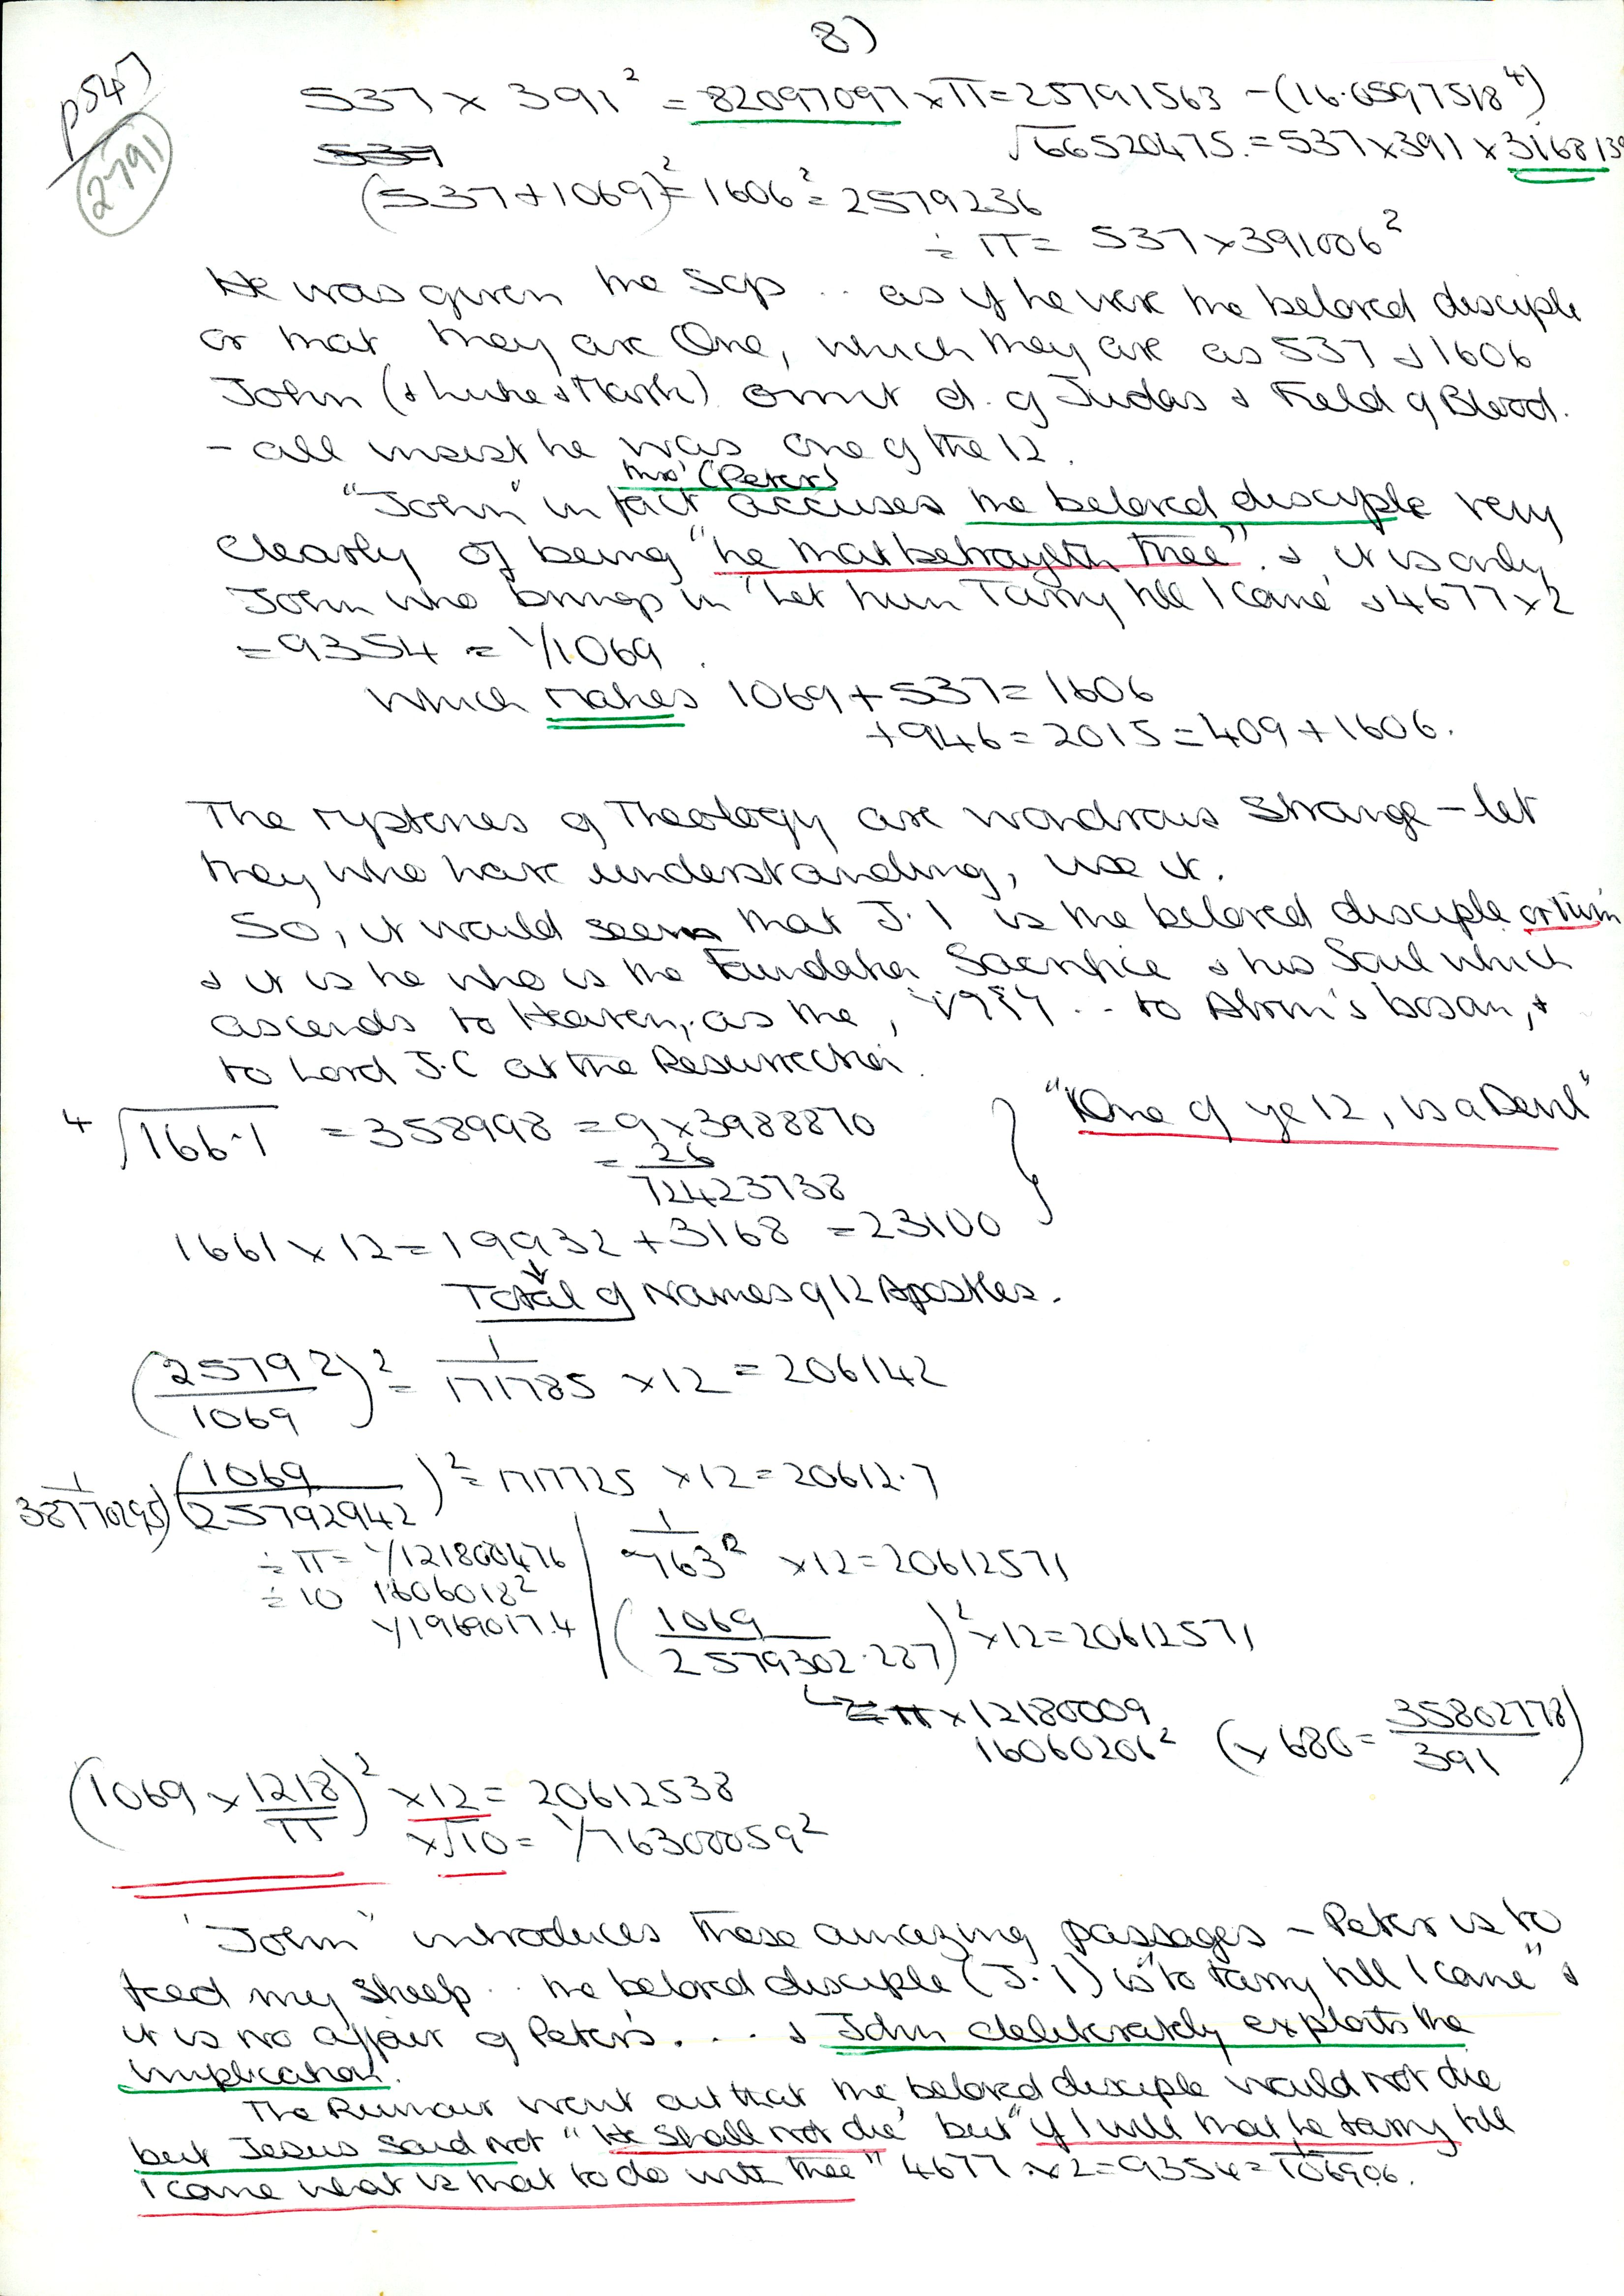 8)
p547
2791
537 x 391² = 82097097 x π = 25791563 - (16.0597518⁴)
537
√66520475. = 537 x 391 x 316813
(537 + 1069)² = 1606² = 2579236
÷ π = 537 x 391006²
He was given the Sop .. as if he were the beloved disciple
or that they are One, which they are as 537 & 1606
John (& Luke & Mark) omit d. of Judas & Field of Blood.
- all insist he was one of the 12.
thro' (Peter)
"John" in fact accuses the beloved disciple very
clearly of being "he that betrayeth thee". & it is only
John who brings in "Let him Tarry till I come" & 4677 x 2
= 9354 = 1/1069.
Which makes 1069 + 537 = 1606
+ 946 = 2015 = 409 + 1606.
The mysteries of Theology are wondrous strange - let
they who have understanding, use it.
So, it would seem that J.I is the beloved disciple or twin
& it is he who is the Foundation Sacrifice & his Soul which
ascends to Heaven, as the, .. to Abm's bosom, &
to Lord J.C at the Resurrection.
⁴√166.1 = 358998 = 9 x 3988870
= 26/72423738
"One of ye 12, is a Devil"
1661 x 12 = 19932 + 3168 = 23100
↓
Total of Names of 12 Apostles.
(25792/1069)² = 1/171785 x 12 = 206142
1/38770295) (1069/25792942)² = 1717725 x 12 = 20612.7
÷ π = 1/121800476
÷ 10 1606018²
1/1969017.4
1/763² x 12 = 20612571
(1069/2579302.227)² x 12 = 20612571
↳ = π x 12180009
16060206² (x 680 = 35802778/391)
(1069 x 1218/π)² x 12 = 20612538
x √10 = 1/76300059²
'John" introduces these amazing passages - Peter is to
feed my sheep .. the beloved disciple (J.I) is "to tarry till I come" &
it is no affair of Peter's. ... & John deliberately exploits the
implication.
The Rumour went out that the beloved disciple would not die
but Jesus said not "He shall not die' but "if I will that he tarry till
I come what is that to do with thee" 4677 x 2 = 9354 = 1/106906.